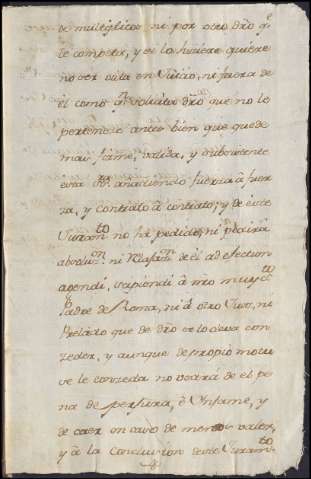 de multiplicar ni por otro dro q.e
le competa, y si lo hiciere quiere
no ser oida en Juicio, ni fuera de
èl como q.n solicita dro que no le
pertenece antes bien que quede
mas firme, valida, y subsistente
esta añadiendo fuerza à fuer
za, y contrato à contrato; y de este
Juram.to no ha pedido, ni pedirà
absoluc.on ni Relajac.on de èl ad efectum
agendi, ni à nro muy S.to
Padre de Roma, ni à otro Juez, ni
Prelado que de dro se lo deva con
zeder, y aunque de propio motu
se le conzeda no usarà de el pe
na de perjura, è Infame, y
de caer en caso de menos valer,
y à la Conclusion deste Juram.to